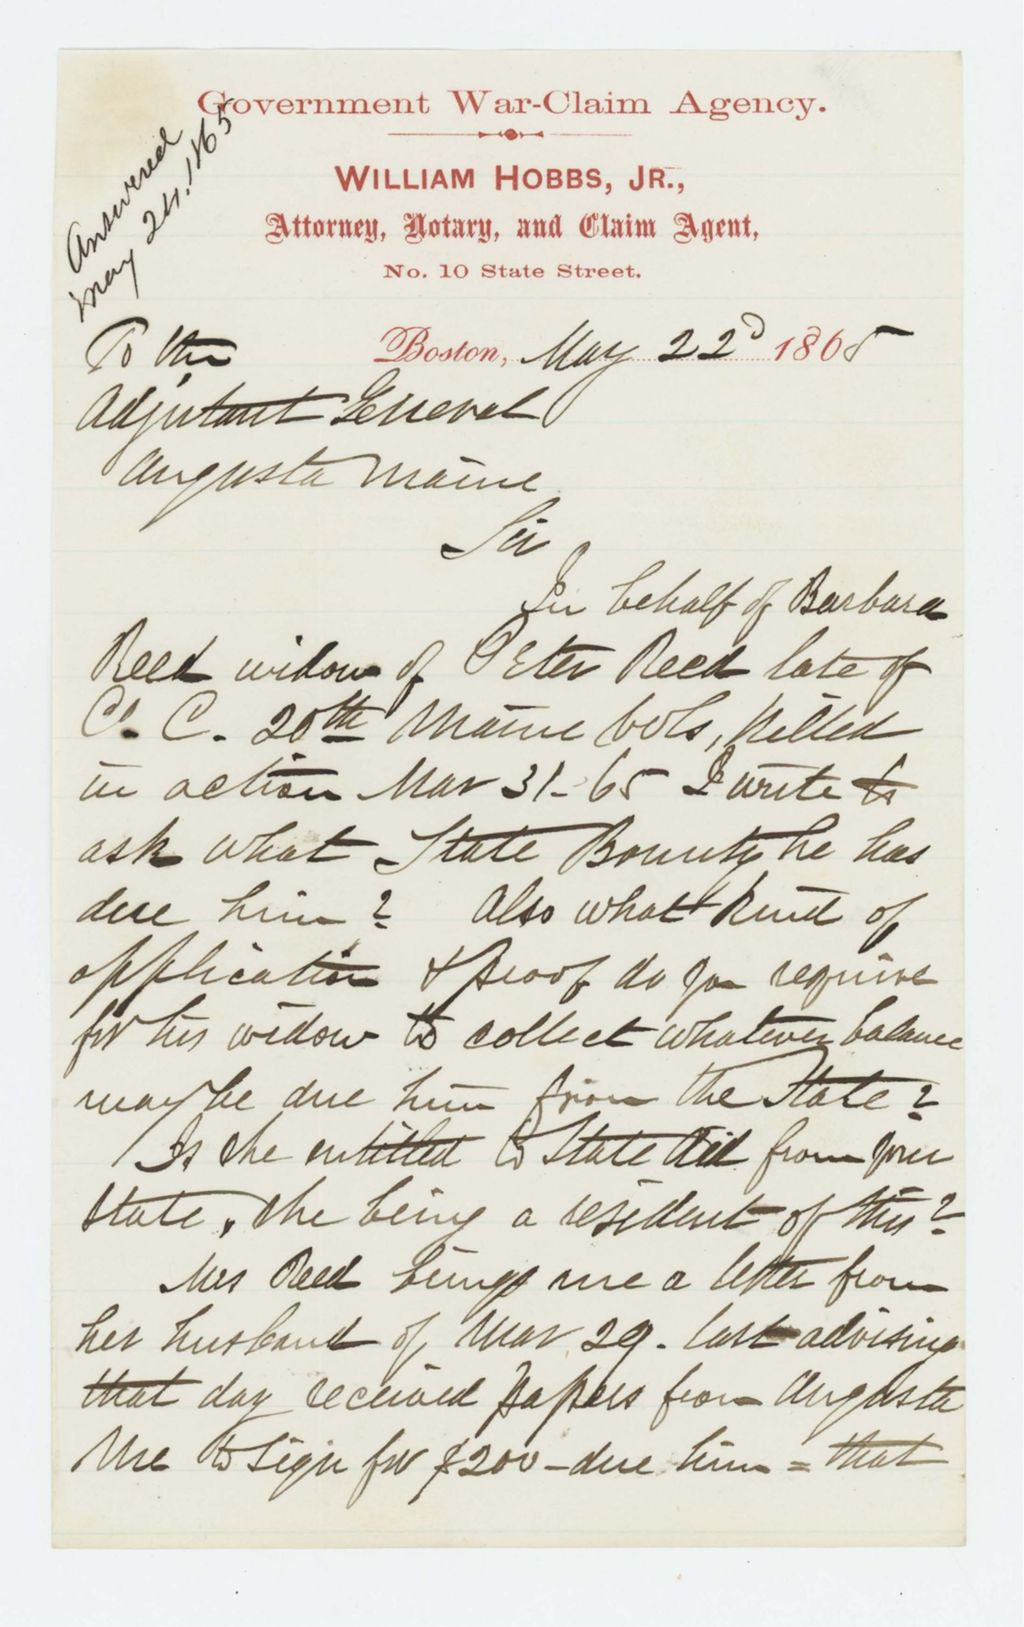 Government War-Claim Agency.
WILLIAM HOBBS, JR.,
Attorney, Notary, and Claim Agent,
No. 10 State Street.
Answered
May 24. 1865
To the Boston, May 22d 1865
Adjutant General
Augusta Maine
Sir
In behalf of Barbara
Reed widow of Peter Reed late of
Co. C. 20th Maine Vols, killed
in action Mar 31-65 I write to
ask what State Bounty he has
due him? Also what kind of
application & proof do you require
for his widow to collect whatever balance
may be due him from the State?
Is she entitled to State Aid from your
State, she being a resident of this?
Mrs Reed brings me a letter from
her husband of Mar 29. last advising
that day received papers from Augusta
Me to sign for $200 - due him = that